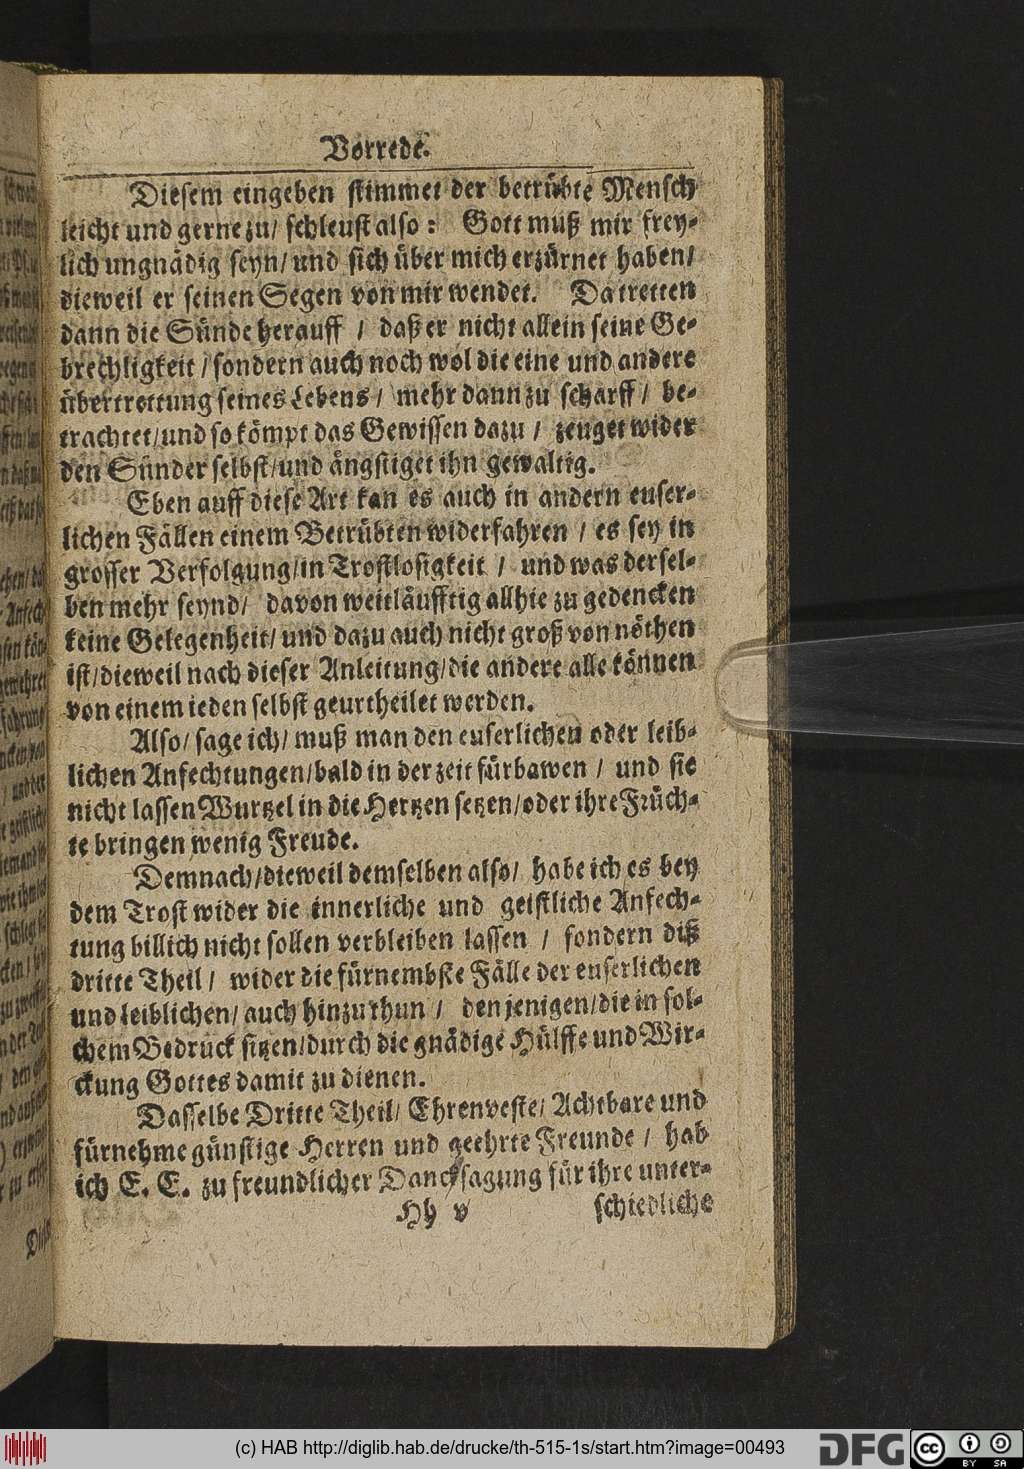 Vorrede.
Diesem eingeben stimmet der betrübte Mensch
leicht und gerne zu/ schleust also: Gott muß mir frey-
lich ungnädig seyn/ und sich über mich erzürnet haben/
dieweil er seinen Segen von mir wendet. Da tretten
dann die Sünde herauff / daß er nicht allein seine Ge-
brechligkeit / sondern auch noch wol die eine und andere
übertrettung seines Lebens / mehr dann zu scharff / be-
trachtet/ und so kömpt das Gewissen dazu / zeuget wider
den Sünder selbst/ und ängstiget ihn gewaltig.
Eben auff diese Art kan es auch in andern euser-
lichen Fällen einem Betrübten widerfahren / es sey in
grosser Verfolgung/ in Trostlosigkeit / und was dersel-
ben mehr seynd/ davon weitläufftig allhie zu gedencken
keine Gelegenheit/ und dazu auch nicht groß von nöthen
ist/ dieweil nach dieser Anleitung/ die andere alle können
von einem ieden selbst geurtheilet werden.
Also/ sage ich/ muß man den euserlichen oder leib-
lichen Anfechtungen/ bald in der zeit fürbawen / und sie
nicht lassen Wurtzel in die Hertzen setzen/ oder ihre Früch-
te bringen wenig Freude.
Demnach/ dieweil demselben also/ habe ich es bey
dem Trost wider die innerliche und geistliche Anfech-
tung billich nicht sollen verbleiben lassen / sondern diß
dritte Theil / wider die fürnembste Fälle der euserlichen
und leiblichen/ auch hinzu thun / den jenigen/ die in sol-
chem Bedruck sitzen/ durch die gnädige Hülffe und Wir-
ckung Gottes damit zu dienen.
Dasselbe Dritte Theil/ Ehrenveste/ Achtbare und
fürnehme günstige Herren und geehrte Freunde / hab
ich E. E. zu freundlicher Dancksagung für ihre unter-
Hh v schiedliche
(c) HAB http://diglib.hab.de/drucke/th-515-1s/start.htm?image=00493
DFG
cc BY SA